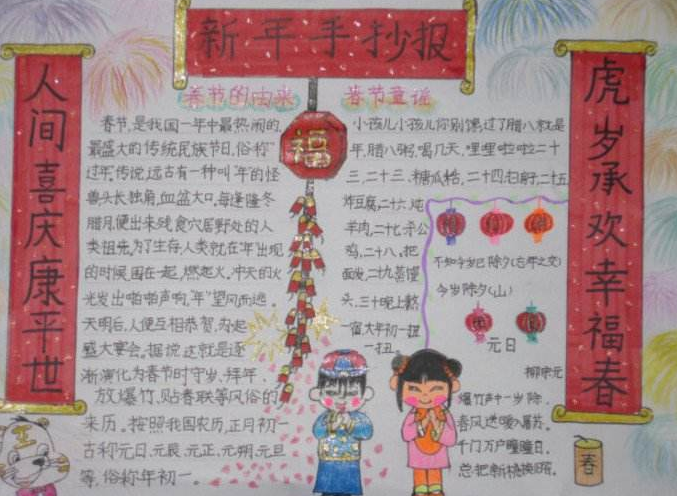 新年手抄报
人间喜庆康平世
虎岁承欢幸福春
春节的由来
春节童谣
福
春节,是我国一年中最热闹的,
最盛大的传统民族节日,俗称"
过年"传说,远古有一种叫"年"的怪
兽头长独角,血盆大口,每逢隆冬
腊月,便出来残食穴居野处的人
类祖先,为了生存,人类就在"年"出现
的时候,围在一起,燃起火,冲天的火
光发出啪啪声响,"年"望风而逃。
天明后,人便互相恭贺,办起
盛大宴会,据说这就是逐
渐演化为春节时守岁、拜年、
放爆竹,贴春联等风俗的
来历。按照我国农历,正月初一
古称元日、元辰、元正、元朔、元旦
等,俗称年初一。
小孩儿小孩儿你别馋,过了腊八就是
年,腊八粥,喝几天,哩哩啦啦二十
三,二十三,糖瓜粘,二十四,扫房子,二十五
炸豆腐,二六,炖
羊肉,二十七,杀公
鸡,二十八,把
面发,二十九,蒸馒
头,三十晚上熬
一宿大年初一扭
一扭。
不知今岁已 除夕(忘年之交)
今岁除夕(山)
元日
柳宗元
爆竹声中一岁除,
春风送暖入屠苏。
千门万户曈曈日,
总把新桃换旧符。
春